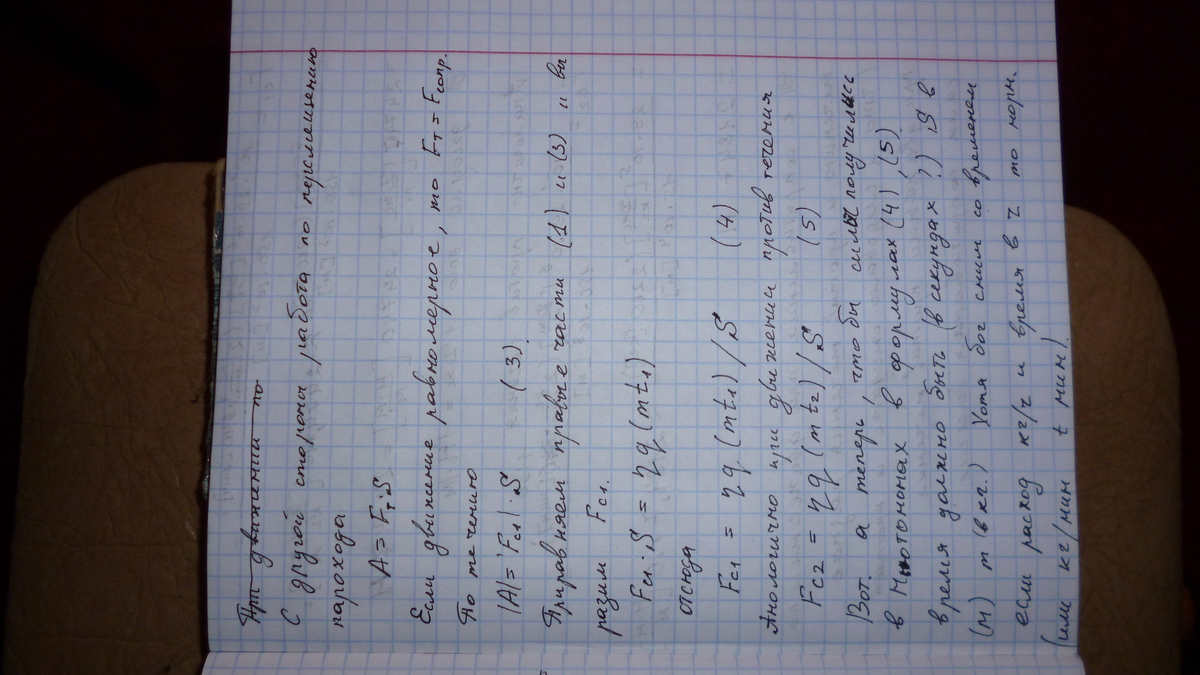 При движении по
С другой стороны работа по перемещению
парохода
A = Fт·S
Если движение равномерное, то Fт = Fсопр.
По течению
|A| = |Fс1|·S (3).
Приравняем правые части (1) и (3) и вы
разим Fс1.
Fс1·S = ηq(mt₁)
отсюда
Fс1 = ηq(mt₁)/S (4)
Анологично при движении против течения
Fс2 = ηq(mt₂)/S (5)
Вот. а теперь, что бы силы получились
в Ньютонах в формулах (4), (5).
время должно быть (в секундах?) S в
(м) m (в кг.) Хотя бог с ним со временем
если расход кг/ч и время в ч то норм.
(или кг/мин t мин).